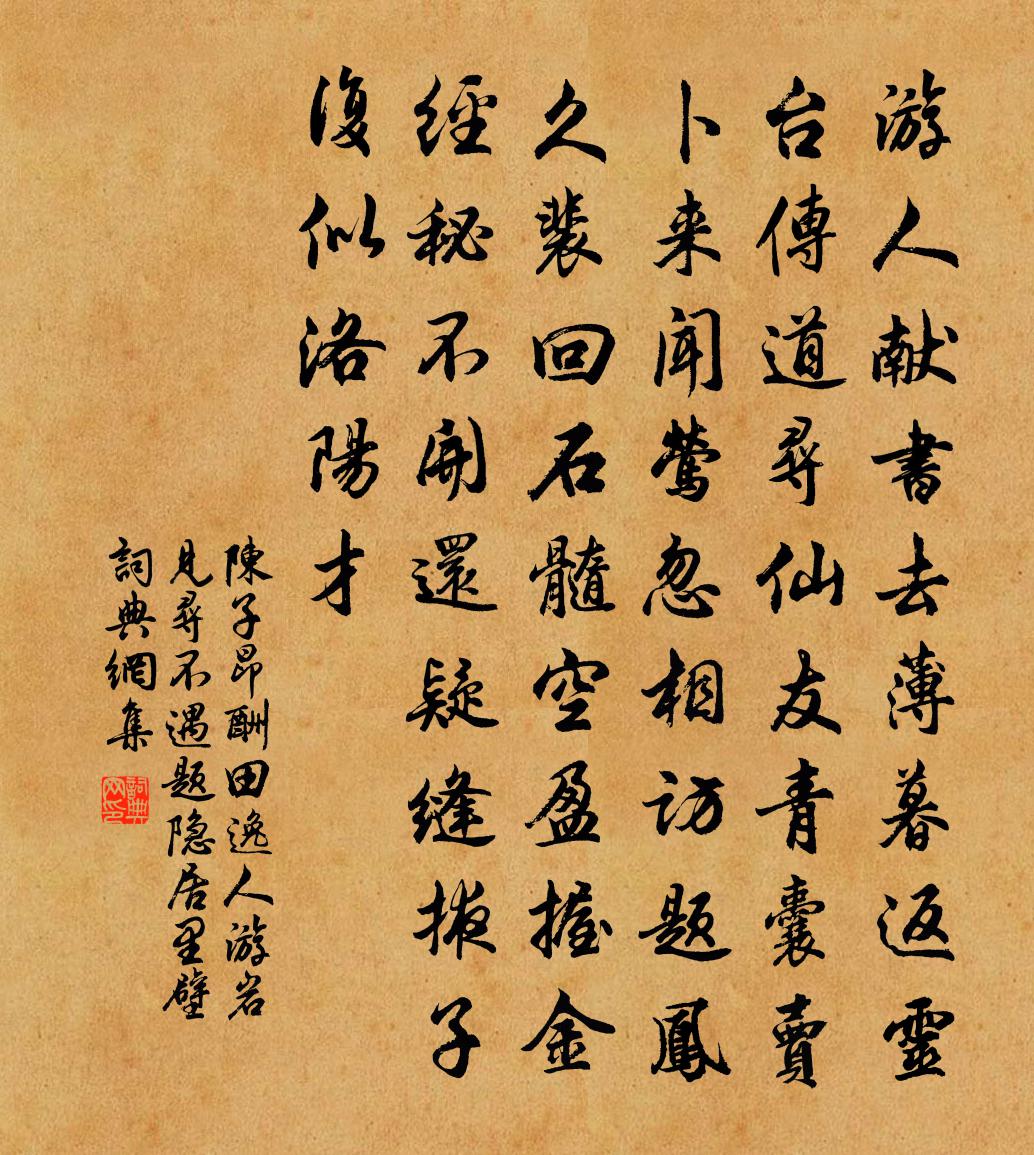 游人献書去薄暮返靈
台傳道尋仙友青囊賣
卜来闻鶯忽相访题鳳
久裴回石髓空盈握金
經秘不開還疑縫掖子
復似洛陽才
陳子昂酬田逸人游岩
見尋不遇题隐居里壁
詞典網集
詞典网印